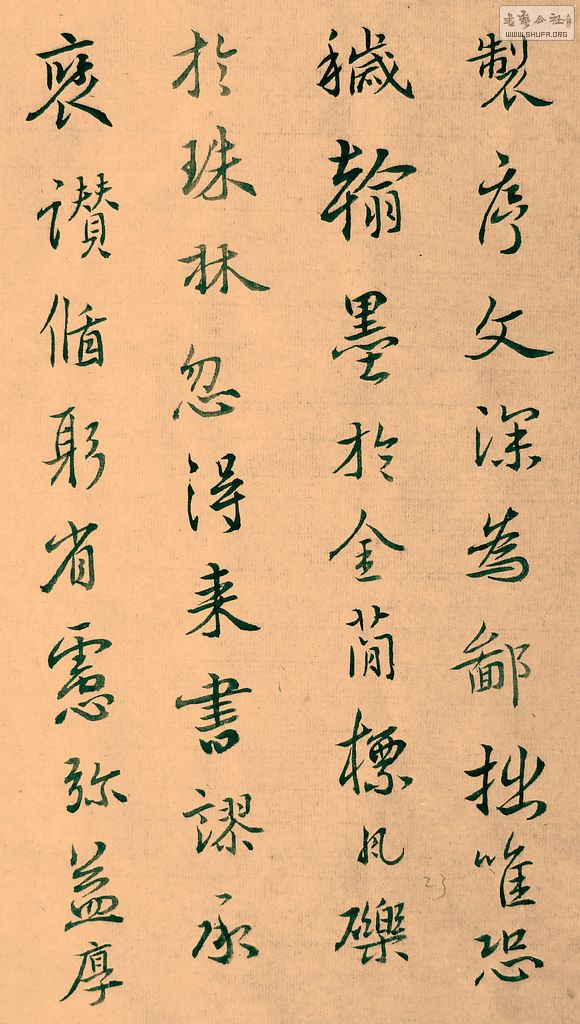 製序文深為鄙拙唯恐
穢翰墨於金簡標瓦礫
於珠林忽得来書謬承
褒讃循躬省慮弥益厚
WWW.SHUFA.ORG
23